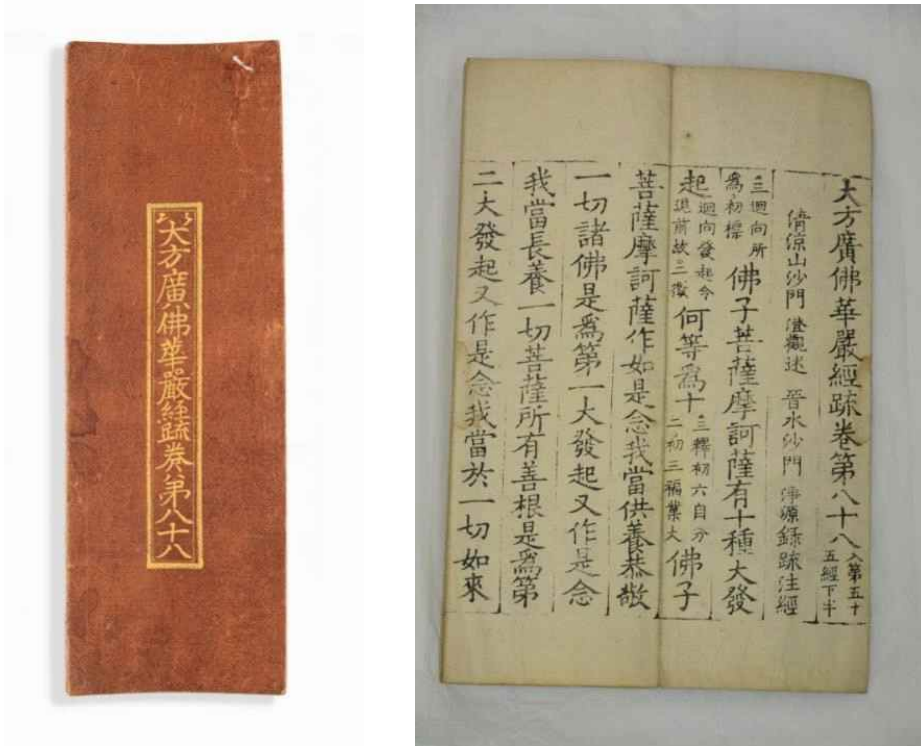 大方廣佛華嚴經疏卷第八十八
大方廣佛華嚴經疏卷第八十八 入第五十 五經下半
清涼山沙門 澄觀述 晉水沙門 淨源録疏注經
三迴向所 爲初標 佛子菩薩摩訶薩有十種大發
起 迴向發起令 進前故三徵 何等爲十 三釋初六自分 二初三福業大 佛子
菩薩摩訶薩作如是念我當供養恭敬
一切諸佛是爲第一大發起又作是念
我當長養一切菩薩所有善根是爲第
二大發起又作是念我當於一切如來